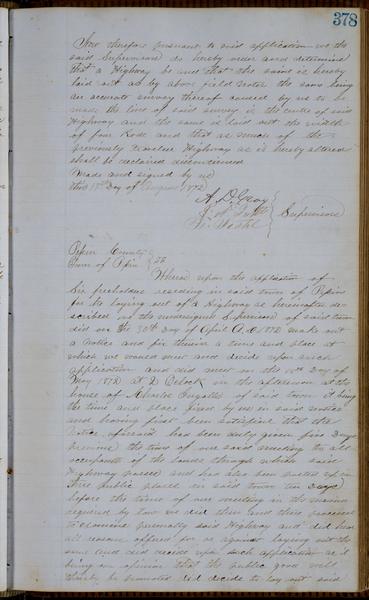 378
Now therefore pursuant to said application we the
said Supervisors do hereby order and determine
that a Highway be and that the same is hereby
laid out as by above field notes the same being
an accurate survey thereof caused by us to be
made the line of said survey is the centre of said
Highway and the same is laid out the width
of four Rods and that as much of the
previously Highway as is hereby altered
shall be declared discontinued
Made and signed by us
this Day of August 1872
A. D. Gray
Supervisors
Pepin County
Town of Pepin } SS
Whereas upon the application of
Six freeholders residing in said town of Pepin
for the laying out of a Highway as hereinafter de-
scribed we the undersigned Supervisors of said town
did on the 30th Day of April A.D. 1872 make out
a Notice and fix therein a time and place at
which we would meet and decide upon such
application and did meet on the Day of
May 1872 at 2 Oclock in the afternoon at the
house of Charles Ingalls of said town it being
the time and place fixed by us in said notice
and having first been satisfied that the
Notice aforesaid had been duly given five Days
previous the time of our said meeting to all
occupants of the lands through which said
Highway passes and has also been posted up in
three public places in said town ten Days
before the time of our meeting in the manner
required by law we did then and there proceed
to examine personally said Highway and did hear
all reasons offered for or against laying out the
same and did decide upon such application and
being in opinion that the public good will
thereby be promoted did decide to lay out said